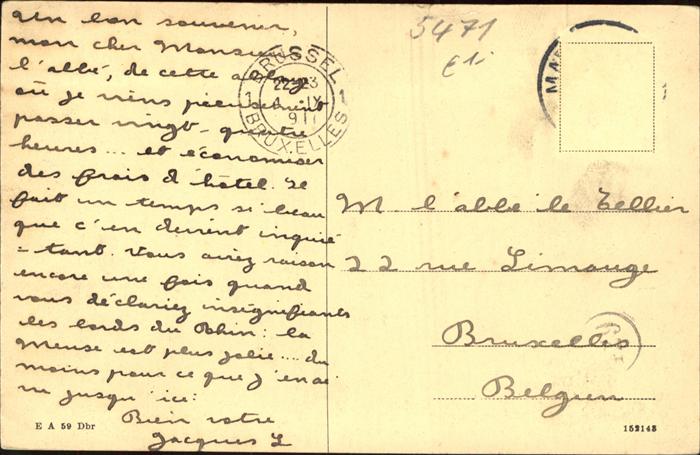 Un bon souvenir,
mon cher Monsieur
l'abbé, de cette
où je viens pieusement
passer vingt-quatre
heures... et économiser
des frais d'hôtel. Il
fait un temps si beau
que c'en devient inquié
=tant. Vous aviez raison
encore une fois quand
vous déclariez insignifiants
les bords du Rhin: la
Meuse est plus jolie... du
moins pour ce que j'en ai
vu jusqu'ici.
Bien vôtre
Jacques L
E A 59 Dbr
5471
BRUSSEL
1 1
22-23
IX
BRUXELLES
MA
M. l'abbé le Tellier
22 rue Limauge
Bruxelles
Belgien
152143